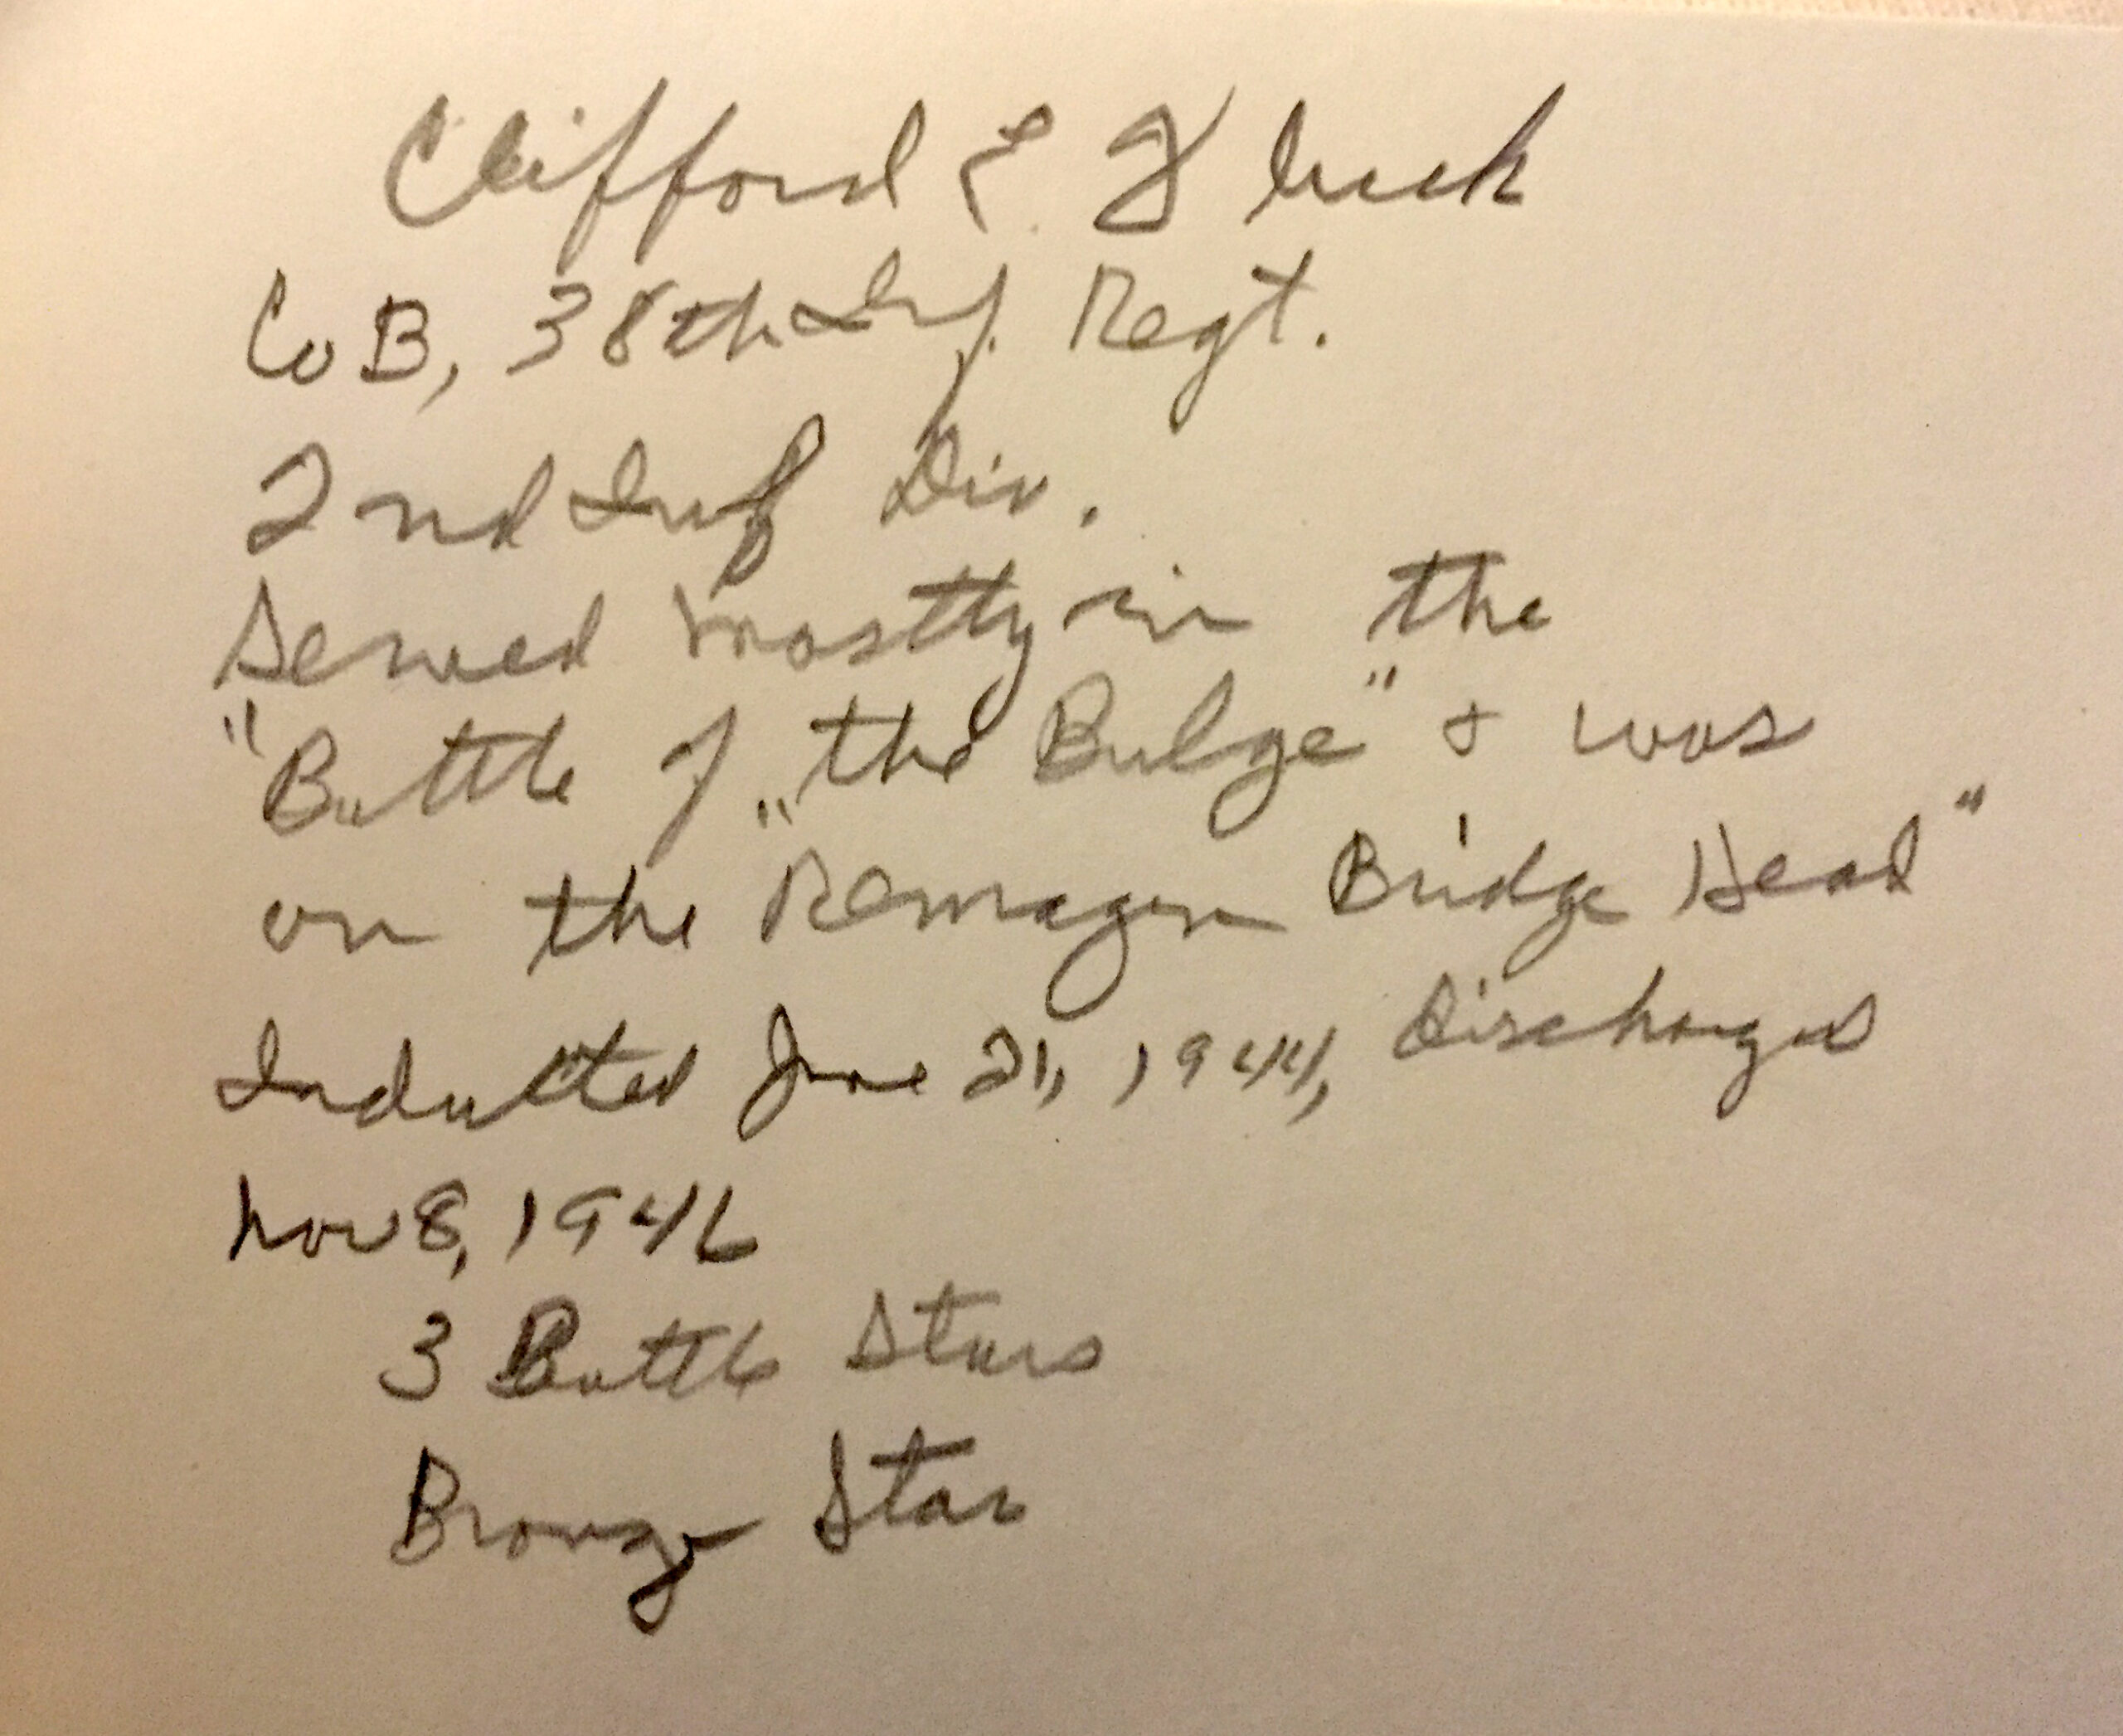 Clifford E.
Co B, 38th Inf. Regt.
2nd Inf Div.
Served mostly in the
"Battle of the Bulge" + was
on the "Remagen Bridge Head"
Inducted June 21, 1944, Discharged
Nov 8, 1946
3 Battle Stars
Bronze Star